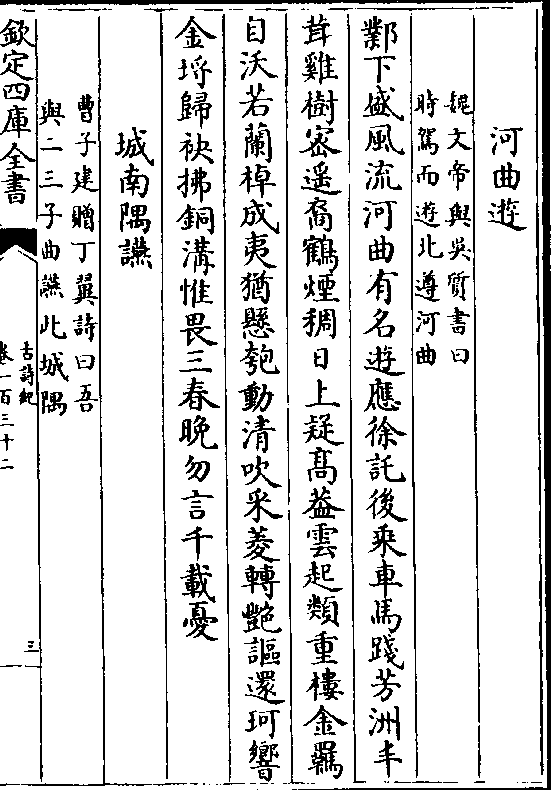 河曲遊
魏文帝與吳質書曰
時駕而遊北遵河曲
鄴下盛風流河曲有名遊應徐託後乘車馬踐芳洲丰
茸雞樹密遥裔鶴煙稠日上疑髙葢雲起類重樓金羈
自沃若蘭棹成夷猶懸匏動清吹采菱轉艶謳還珂響
金埒歸袂拂銅溝惟畏三春晚勿言千載憂
城南隅讌
曹子建贈丁翼詩曰吾
與二三子曲讌此城隅
欽定四庫全書
古詩紀
卷一百三十二
三